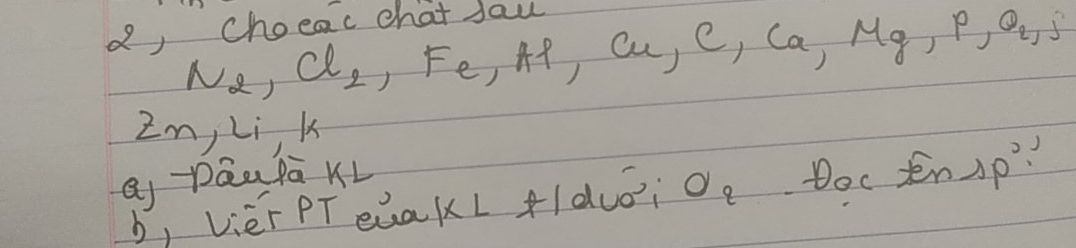 2, Cho các chất sau
N2, Cl2, Fe, Al, Cu, C, Ca, Mg, P, O2, S
Zn, Li, K
a, Đâu là KL
b, Viết PT của KL t/d với O2. Đọc tên sp?